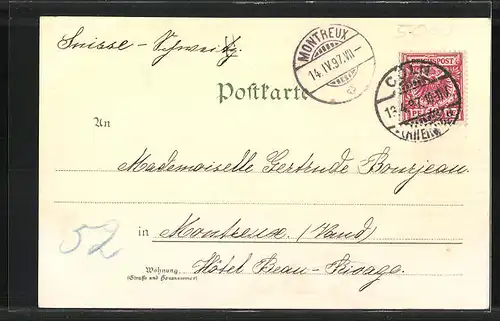 Suisse - Schweiz
MONTREUX
14.IV.97.VII-
REICHSPOST
CÖLN
13.4.97
PFENNIG
Postkarte
An
Mademoiselle Gertrude Bourjeau.
in Montreux. (Vaud)
52
Wohnung
(Straße und Hausnummer)
Hôtel Beau-Rivage.